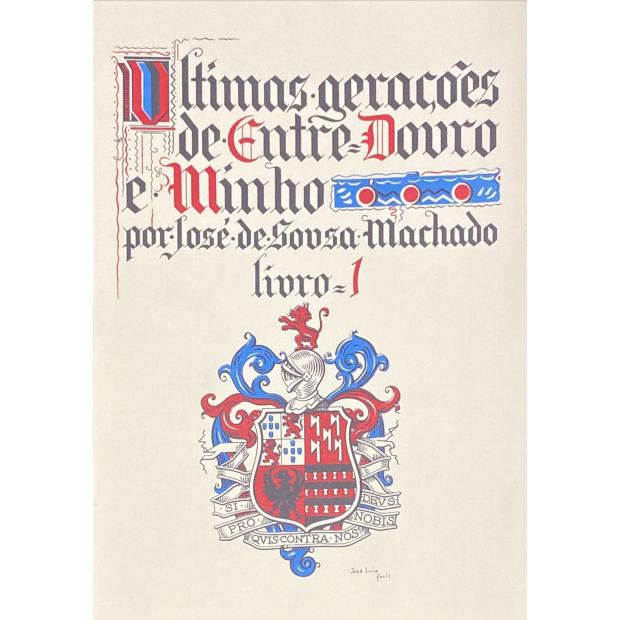 Ultimas·gerações
de·Entre=Douro
e·Minho
por·José·de·Sousa·Machado
livro=1
·SI·DEVS·
PRO·NOBIS
QVIS·CONTRA·NOS?
José Luis
fecit